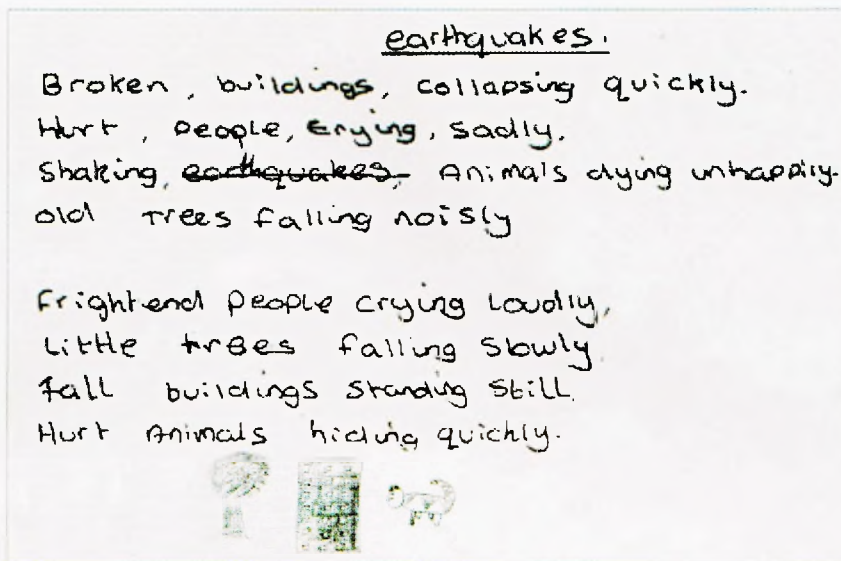 earthquakes.
Broken, buildings, collapsing quickly.
Hurt, People, crying, sadly.
Shaking, earthquakes, Animals dying unhappily.
old Trees falling noisly
Frightend People crying Loudly,
Little trees falling slowly
Tall buildings standing still.
Hurt Animals hiding quickly.